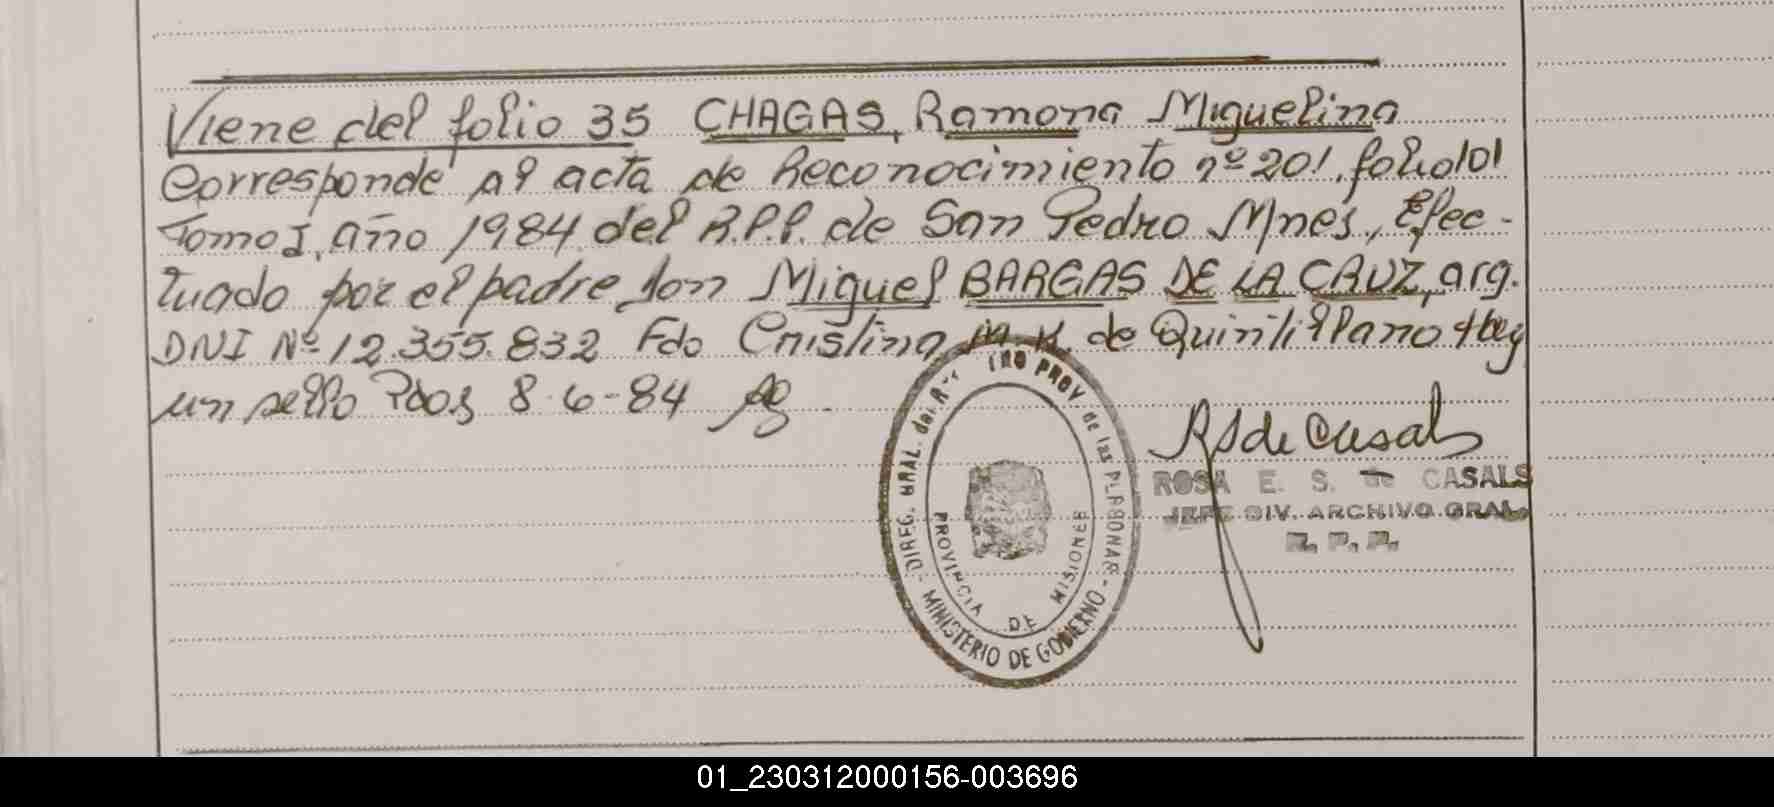 Viene del folio 35 CHAGAS, Ramona Miguelina
Corresponde al acta de Reconocimiento nº 201, folio 101
Tomo I, año 1984 del R.P.P. de San Pedro Mnes., Efec-
tuado por el padre don Miguel BARGAS DE LA CRUZ, arg.
DNI Nº 12.355.832 Fdo Cristina M. K. de Hay
un sello Pdas 8-6-84
R S de Casals
ROSA E. S. de CASALS
JEFE DIV. ARCHIVO GRAL.
R. P. P.
DIREC. GRAL. del PROV. de las PERSONAS
PROVINCIA DE MISIONES
MINISTERIO DE GOBIERNO
01_230312000156-003696